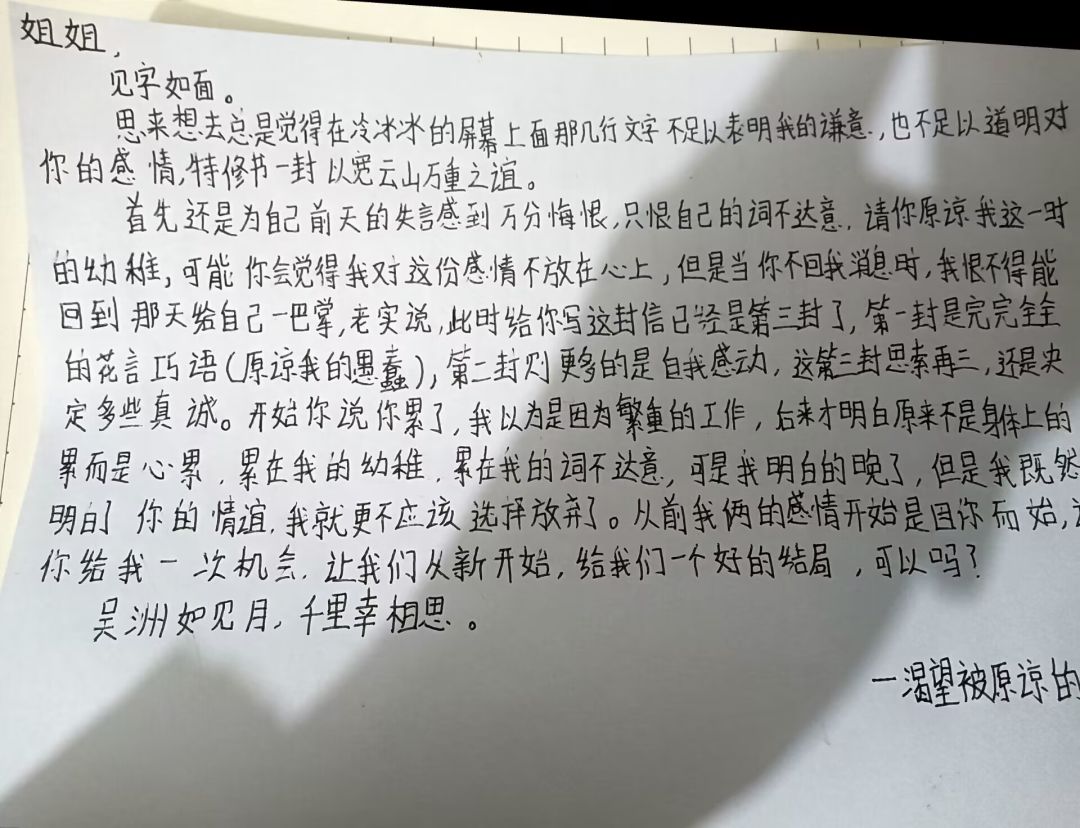 姐姐,
见字如面。
思来想去总是觉得在冷冰冰的屏幕上面那几行文字不足以表明我的谦意,也不足以道明对
你的感情,特修书一封以宽云山万重之谊。
首先还是为自己前天的失言感到万分悔恨,只恨自己的词不达意,请你原谅我这一时
的幼稚,可能你会觉得我对这份感情不放在心上,但是当你不回我消息时,我恨不得能
回到那天给自己一巴掌,老实说,此时给你写这封信已经是第三封了,第一封是完完全全
的花言巧语(原谅我的愚蠢),第二封则更多的是自我感动,这第三封思索再三,还是决
定多些真诚。开始你说你累了,我以为是因为繁重的工作,后来才明白原来不是身体上的
累而是心累,累在我的幼稚,累在我的词不达意,可是我明白的晚了,但是我既然
明白了你的情谊,我就更不应该选择放弃了。从前我俩的感情开始是因你而始,
你给我一次机会,让我们从新开始,给我们一个好的结局,可以吗?
吴洲如见月,千里幸相思。
一渴望被原谅的